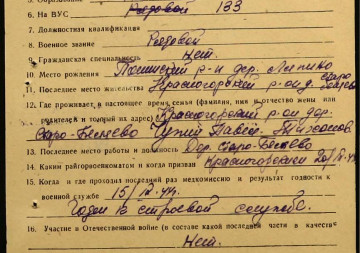 6. На ВУС Рядовой 133
7. Должностная квалификация
8. Военное звание Рядовой
9. Гражданская специальность Нет.
10. Место рождения р-н дер. Липино
11. Последнее место жительства Красногорский р-он д. Старо
12. Где проживает в настоящее время семья (фамилия, имя и отчество жены или
родителей и точный их адрес) Красногорский р-он дер.
Старо-Беляево
13. Последнее место работы и должность Дер. Старо-Беляево
14. Каким райгорвоенкоматом и когда призван Красногорским
15. Когда и где проходил последний раз медкомиссию и результат годности к
военной службе 15/IV.44.
Годен к строевой службе.
16. Участие в Отечественной войне (в составе какой последней части в качестве
Нет.